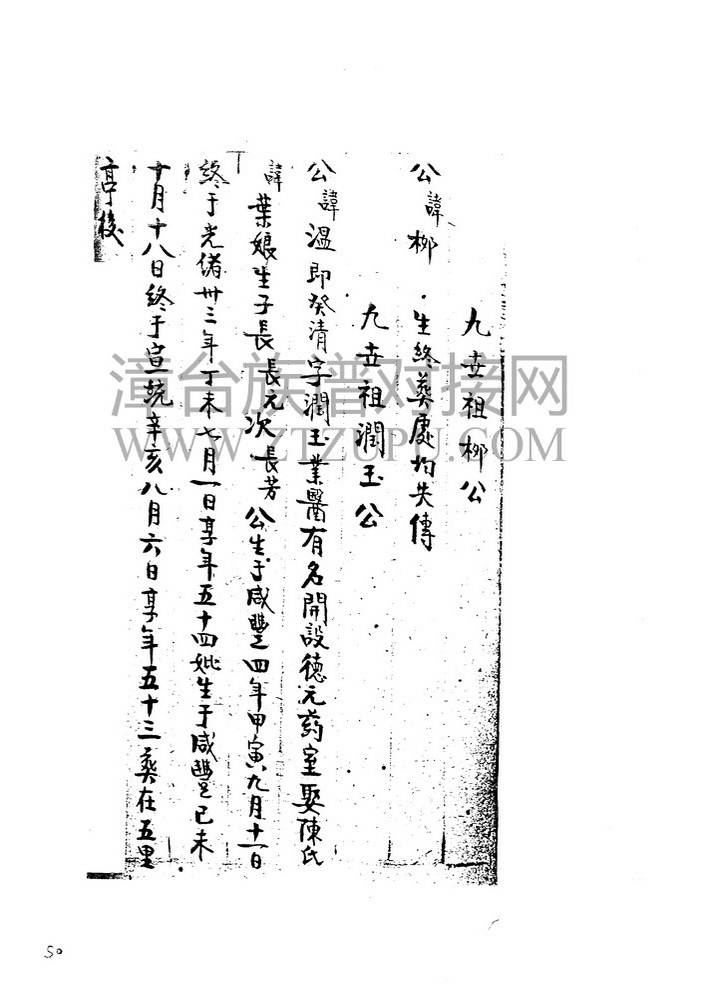 九世祖柳公
公諱柳生終葬處均失傳
九世祖潤玉公
公諱溫即癸清字潤玉業醫有名開設德元葯室娶陳氏
諱葉娘生子長長元次長芳公生于咸豐四年甲寅九月十一日
終于光緒卅三年丁未七月一日享年五十四妣生于咸豐己未
十月十八日終于宣統辛亥八月六日享年五十三葬在五里
亭後
漳台族谱对接网
WWW.ZTZUPU.COM
50